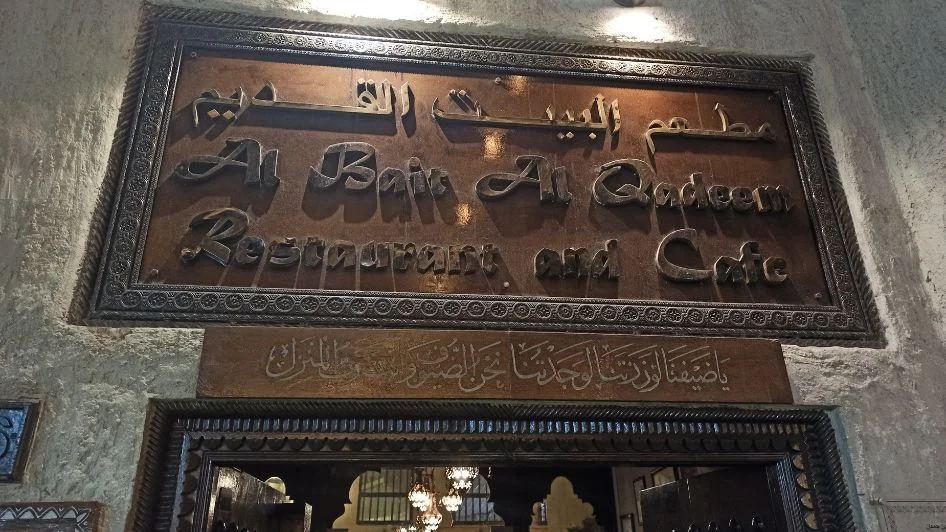 مطعم البيت القديم
Al Bait Al Qadeem
Restaurant and Cafe
يا ضيفنا لو زرتنا لوجدتنا نحن الضيوف وأنت رب المنزل